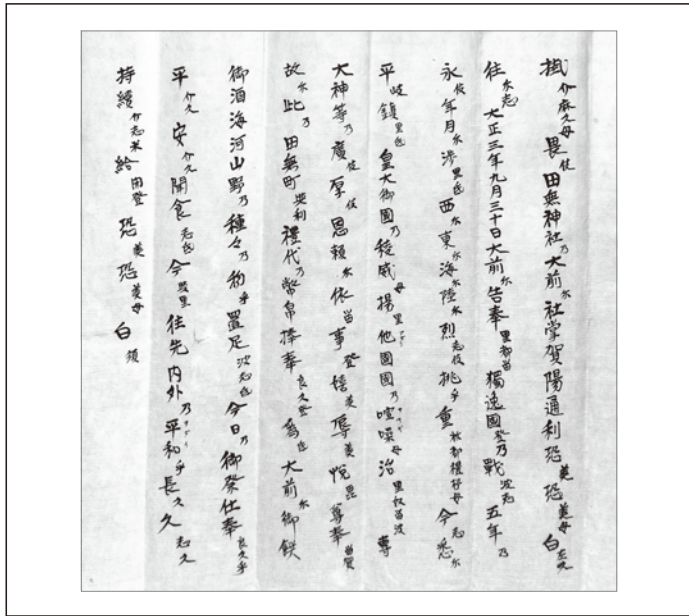 掛介麻久母畏伎田無神社乃大前尓社掌賀陽通利恐美恐美母白左久
往尓志大正三年九月三十日大前尓告奉里都留獨逸國登乃戰波志五年乃
永伎年月尓渉里氐西尓東尓海尓陸尓烈志伎挑乎重祢都禮杼母今志悉尓
平岐鎮里氐皇大御國乃稜威母揚里他國國乃喧噪母治里奴留波專
大神等乃廣伎厚伎恩頼尓依留事登嬉美辱美悦毘尊奉留賀
故尓此乃田無町與利禮代乃幣帛捧奉良久登為氐大前尓御饌
御酒海河山野乃種々乃物乎置足波志氐今日乃御祭仕奉良久乎
平介久安介久聞食志氐今與里往先内外乃平和乎長久久志久
持續介志米給閇登恐美恐美母白須